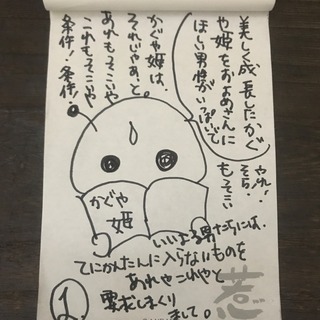 美しく成長したかぐ
や姫をおよめさんに
ほしい男性がいっぱいで
やれ!
そら!
もてそこい
かぐや姫は、
それじゃあ、と。
あれもそこいや
これもそこいや
条件!条件!
かぐや
姫
いいよる男たちには、
てにかんたんに入らないものを
あれやこれやと
要求しまくり
まして。
惹